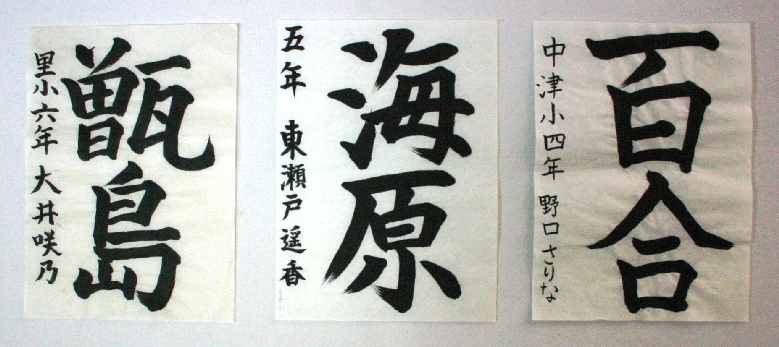 百合
中津小四年 野口さりな
海原
五年 東瀬戸遥香
甑島
里小六年 大井咲乃